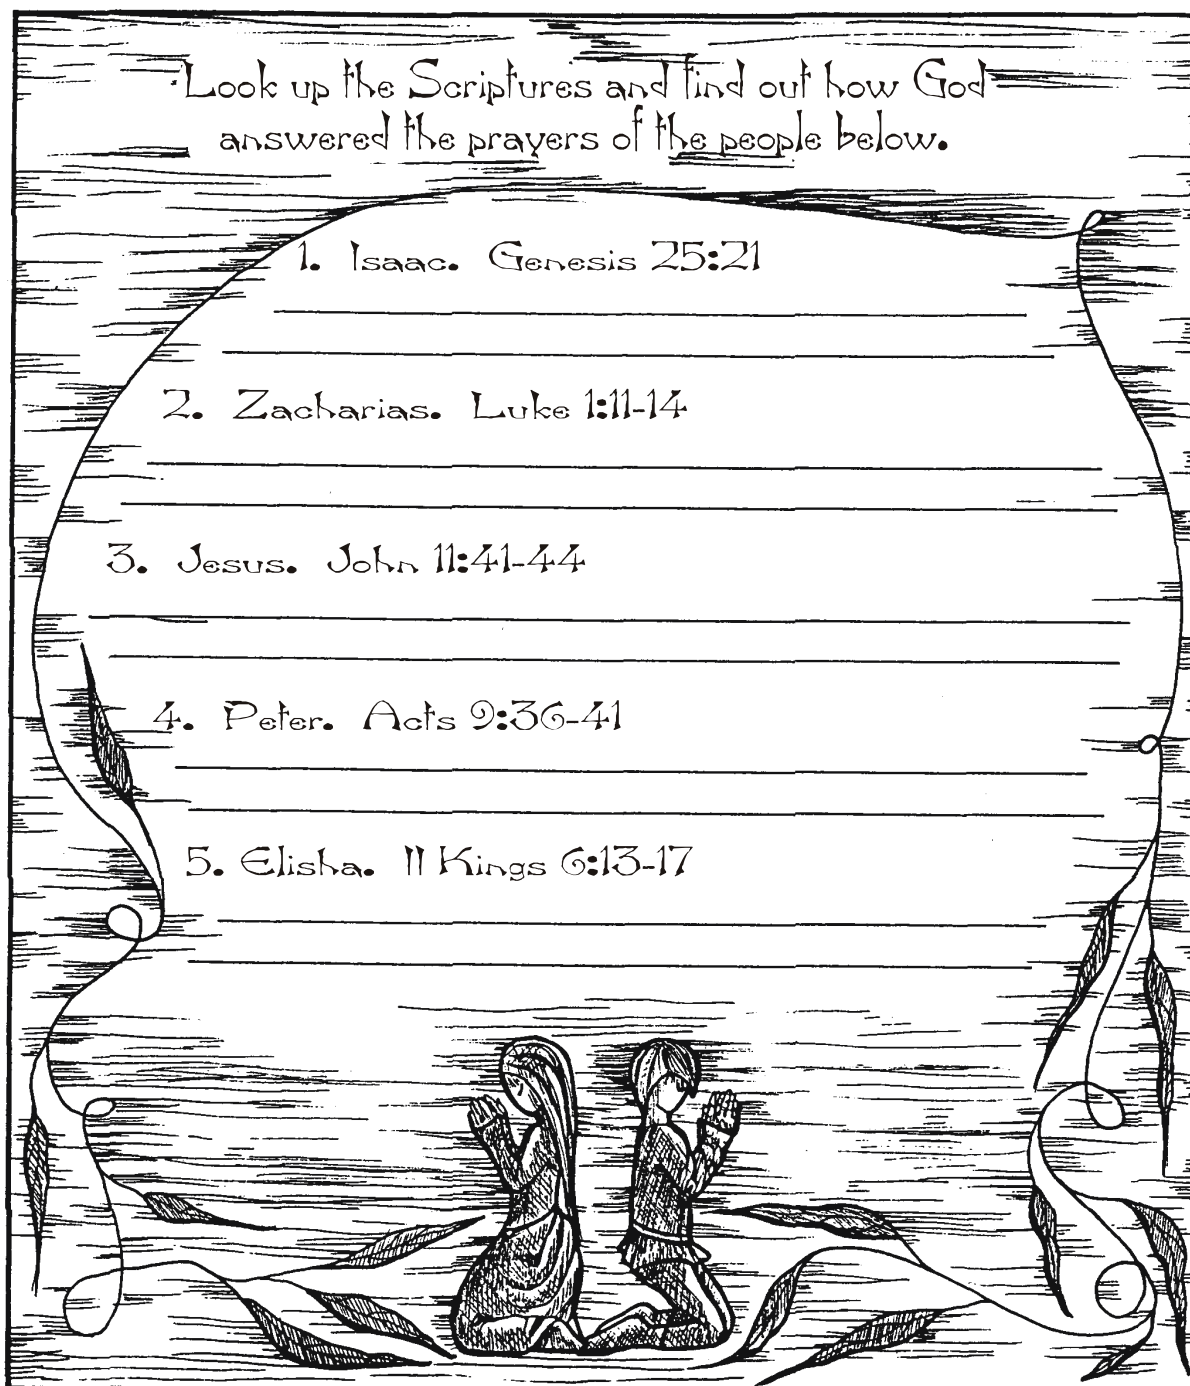 Look up the Scriptures and find out how God
answered the prayers of the people below.
1. Isaac. Genesis 25:21
2. Zacharias. Luke 1:11-14
3. Jesus. John 11:41-44
4. Peter. Acts 9:36-41
5. Elisha. II Kings 6:13-17